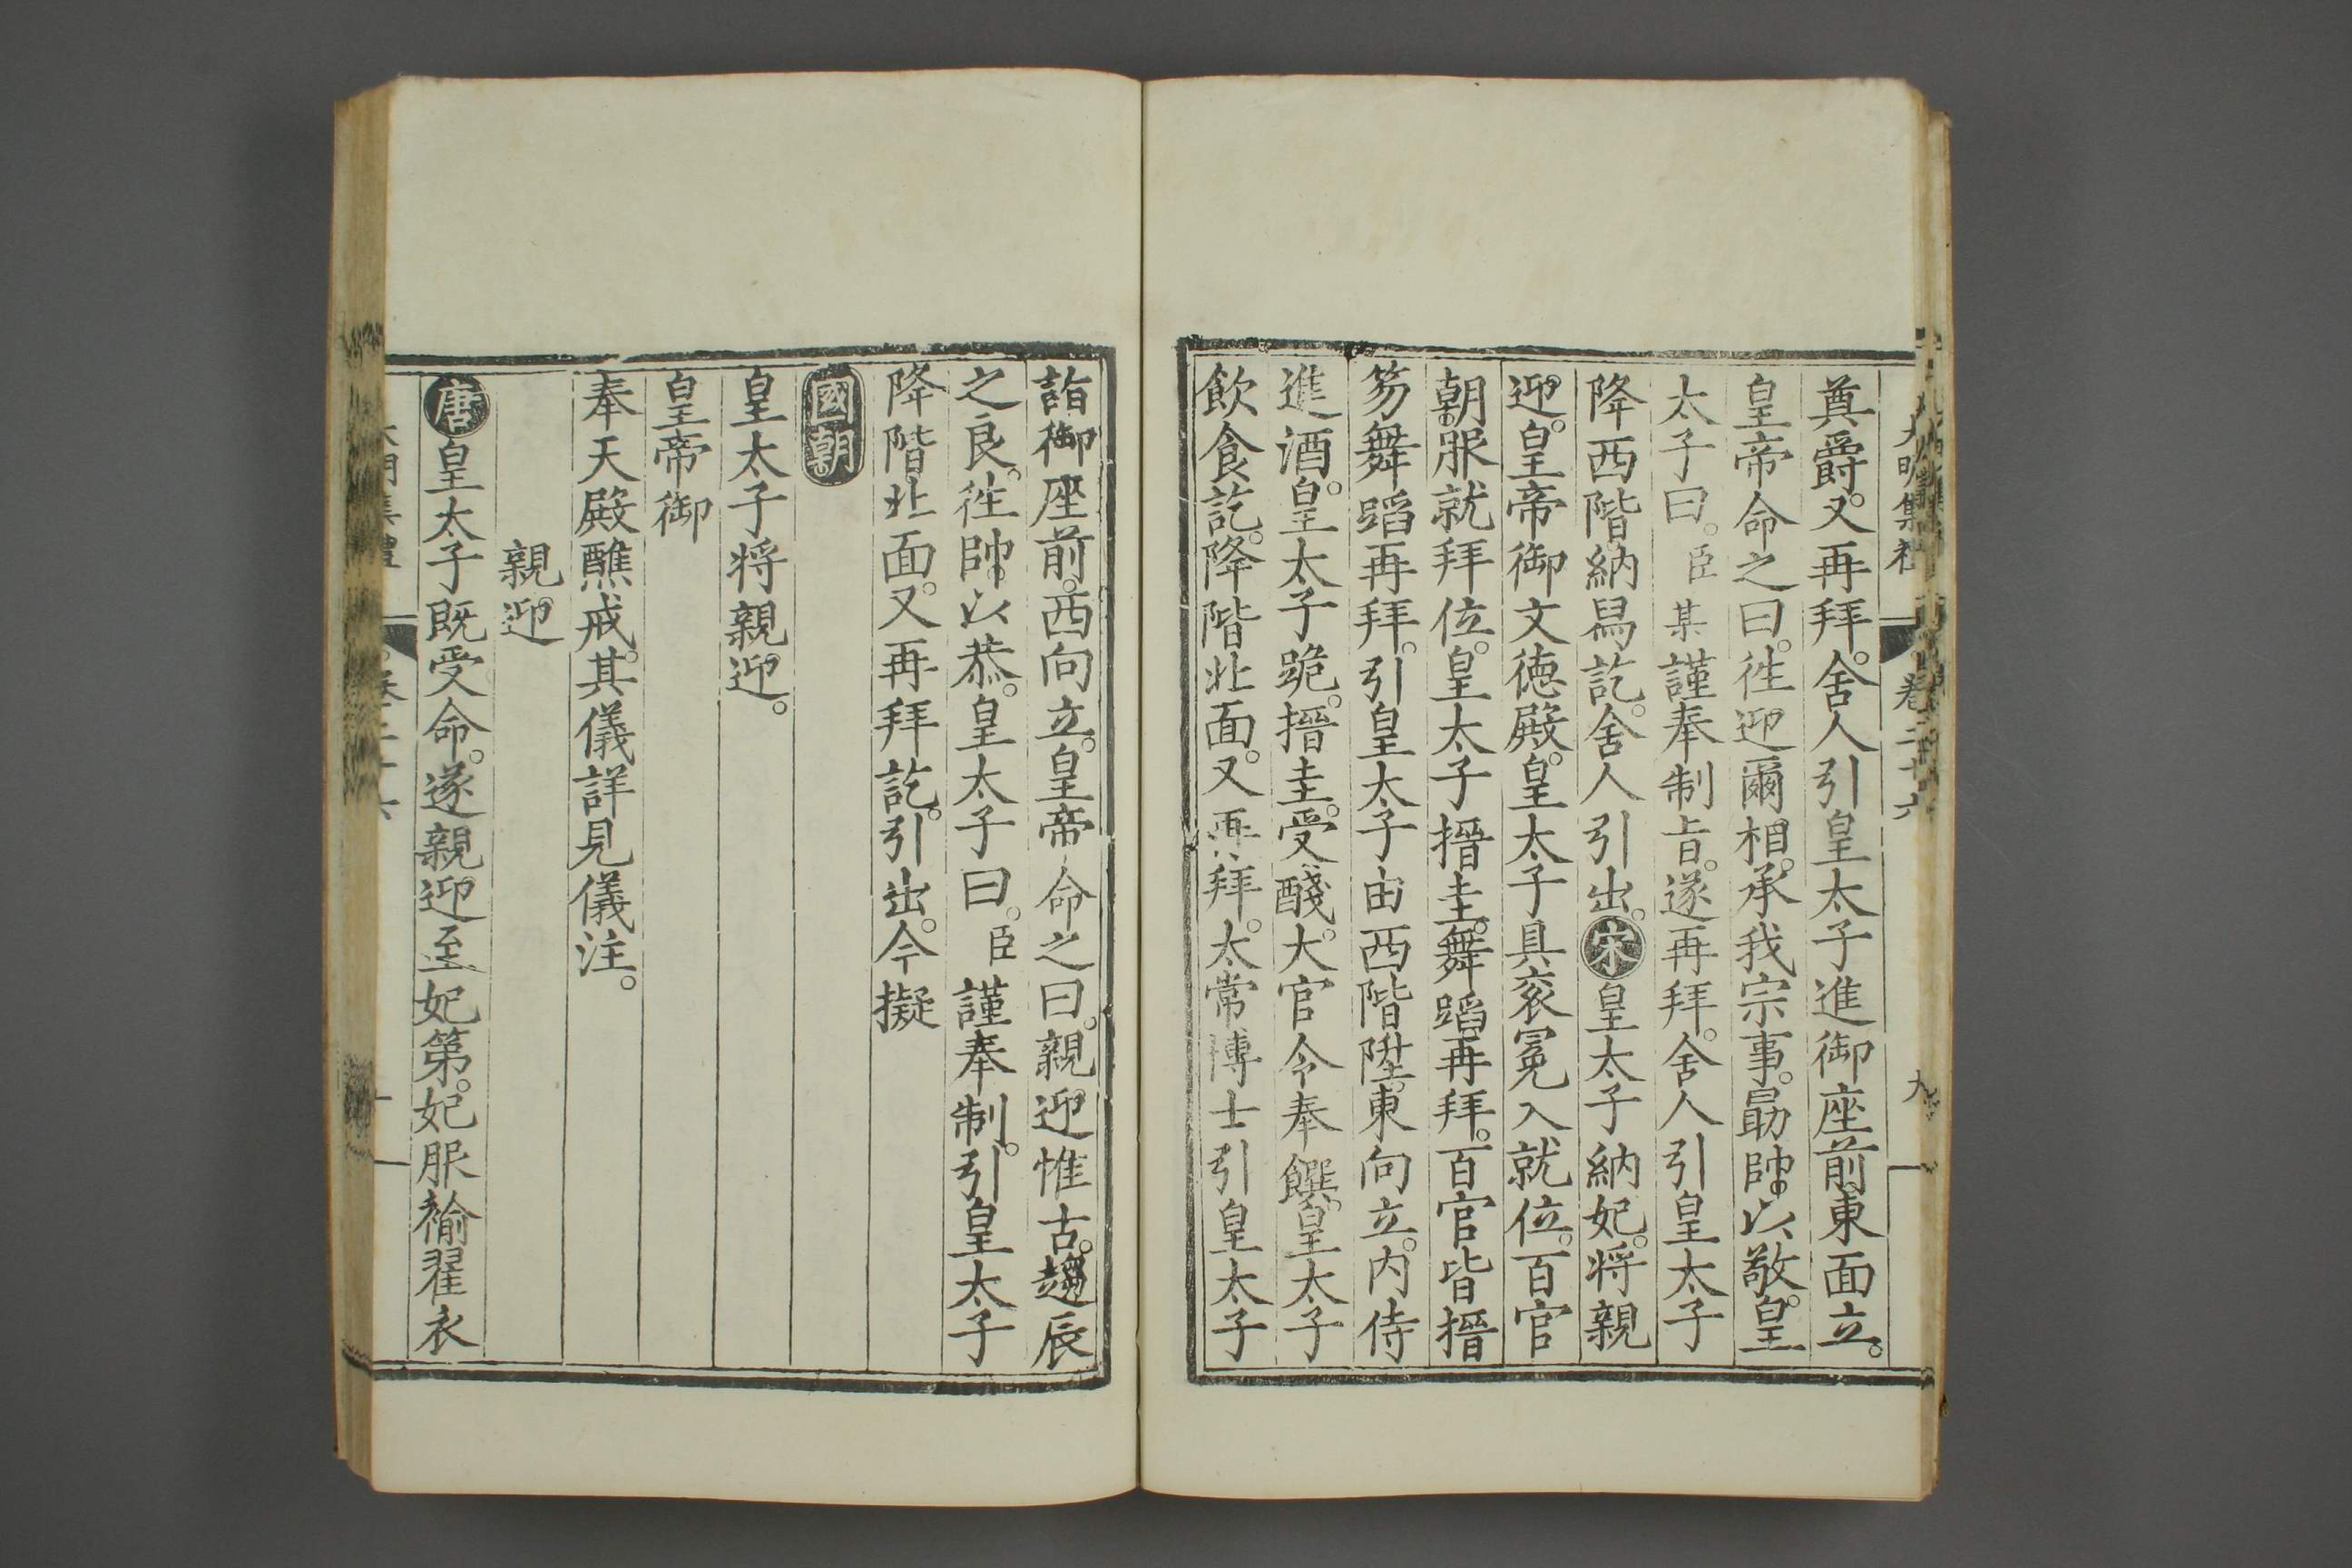 大明集礼 卷二十六 九
奠爵。又再拜。舍人引皇太子進御座前東面立。
皇帝命之曰。徃迎爾相。承我宗事。勗帥以敬。皇
太子曰。臣某謹奉制旨。遂再拜。舍人引皇太子
降西階納舄訖。舍人引出。宋皇太子納妃。将親
迎。皇帝御文徳殿。皇太子具衮冕入就位。百官
朝服就拜位。皇太子搢圭。舞蹈再拜。百官皆搢
笏舞蹈再拜。引皇太子由西階陞。東向立。内侍
進酒。皇太子跪。搢圭。受醆。大官令奉饌。皇太子
飲食訖。降階北面。又再拜。太常博士引皇太子
詣御座前。西向立。皇帝命之曰。親迎惟古。趨辰
之良。徃帥以恭。皇太子曰。臣謹奉制。引皇太子
降階北面。又再拜訖。引出。今擬
國朝
皇太子将親迎。
皇帝御
奉天殿醮戒。其儀詳見儀注。
親迎
唐皇太子既受命。遂親迎至妃第。妃服褕翟衣